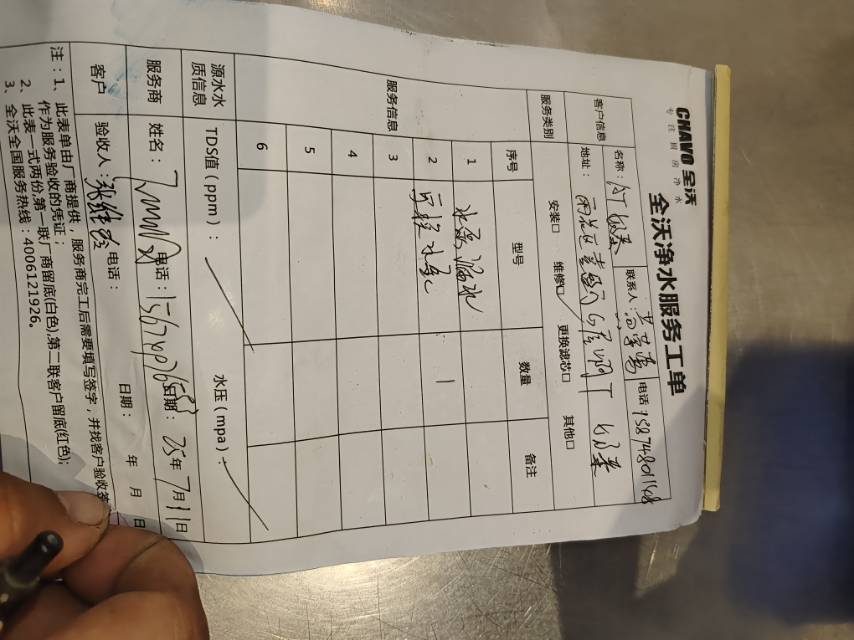 CHAVO 全沃
专注厨房净水
全沃净水服务工单
客户信息 名称： 联系人： 电话 15874801168
地址：
服务类别 安装□ 维修☑ 更换滤芯□ 其他□
服务信息 序号 型号 数量 备注
1 水泵漏水
2 更换水泵 1
3
4
5
6
源水水质信息 TDS值（ppm）： 水压（mpa）：
服务商 姓名： 电话： 日期： 25年7月11日
客户 验收人： 电话： 日期： 年 月 日
注：1、此表单由厂商提供，服务商完工后需要填写签字，并找客户验收签
作为服务验收的凭证；
2、此表一式两份,第一联厂商留底(白色),第二联客户留底(红色);
3、全沃全国服务热线：4006121926。